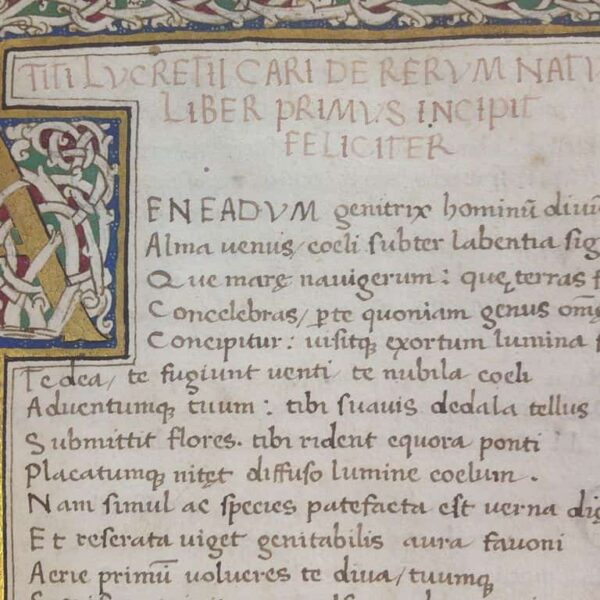 TITI LVCRETII CARI DE RERVM NATV
LIBER PRIMVS INCIPIT
FELICITER
AENEADVM genitrix hominū diuū
Alma uenus/ coeli subter labentia sig
Que marę nauigerum: quę terras f
Concelebras/ ꝑte quoniam genus omę
Concipitur: uisitqꝫ exortum lumina s
Te dea/ te fugiunt uenti/ te nubila coeli
Aduentumqꝫ tuum: tibi suauis dedala tellus
Submittit flores. tibi rident equora ponti
Placatumqꝫ nitęt diffuso lumine coelum.
Nam simul ac species patefacta est uerna dię
Et reserata uiget genitabilis aura fauoni
Aerie primū uolucres te diua/ tuumqꝫ